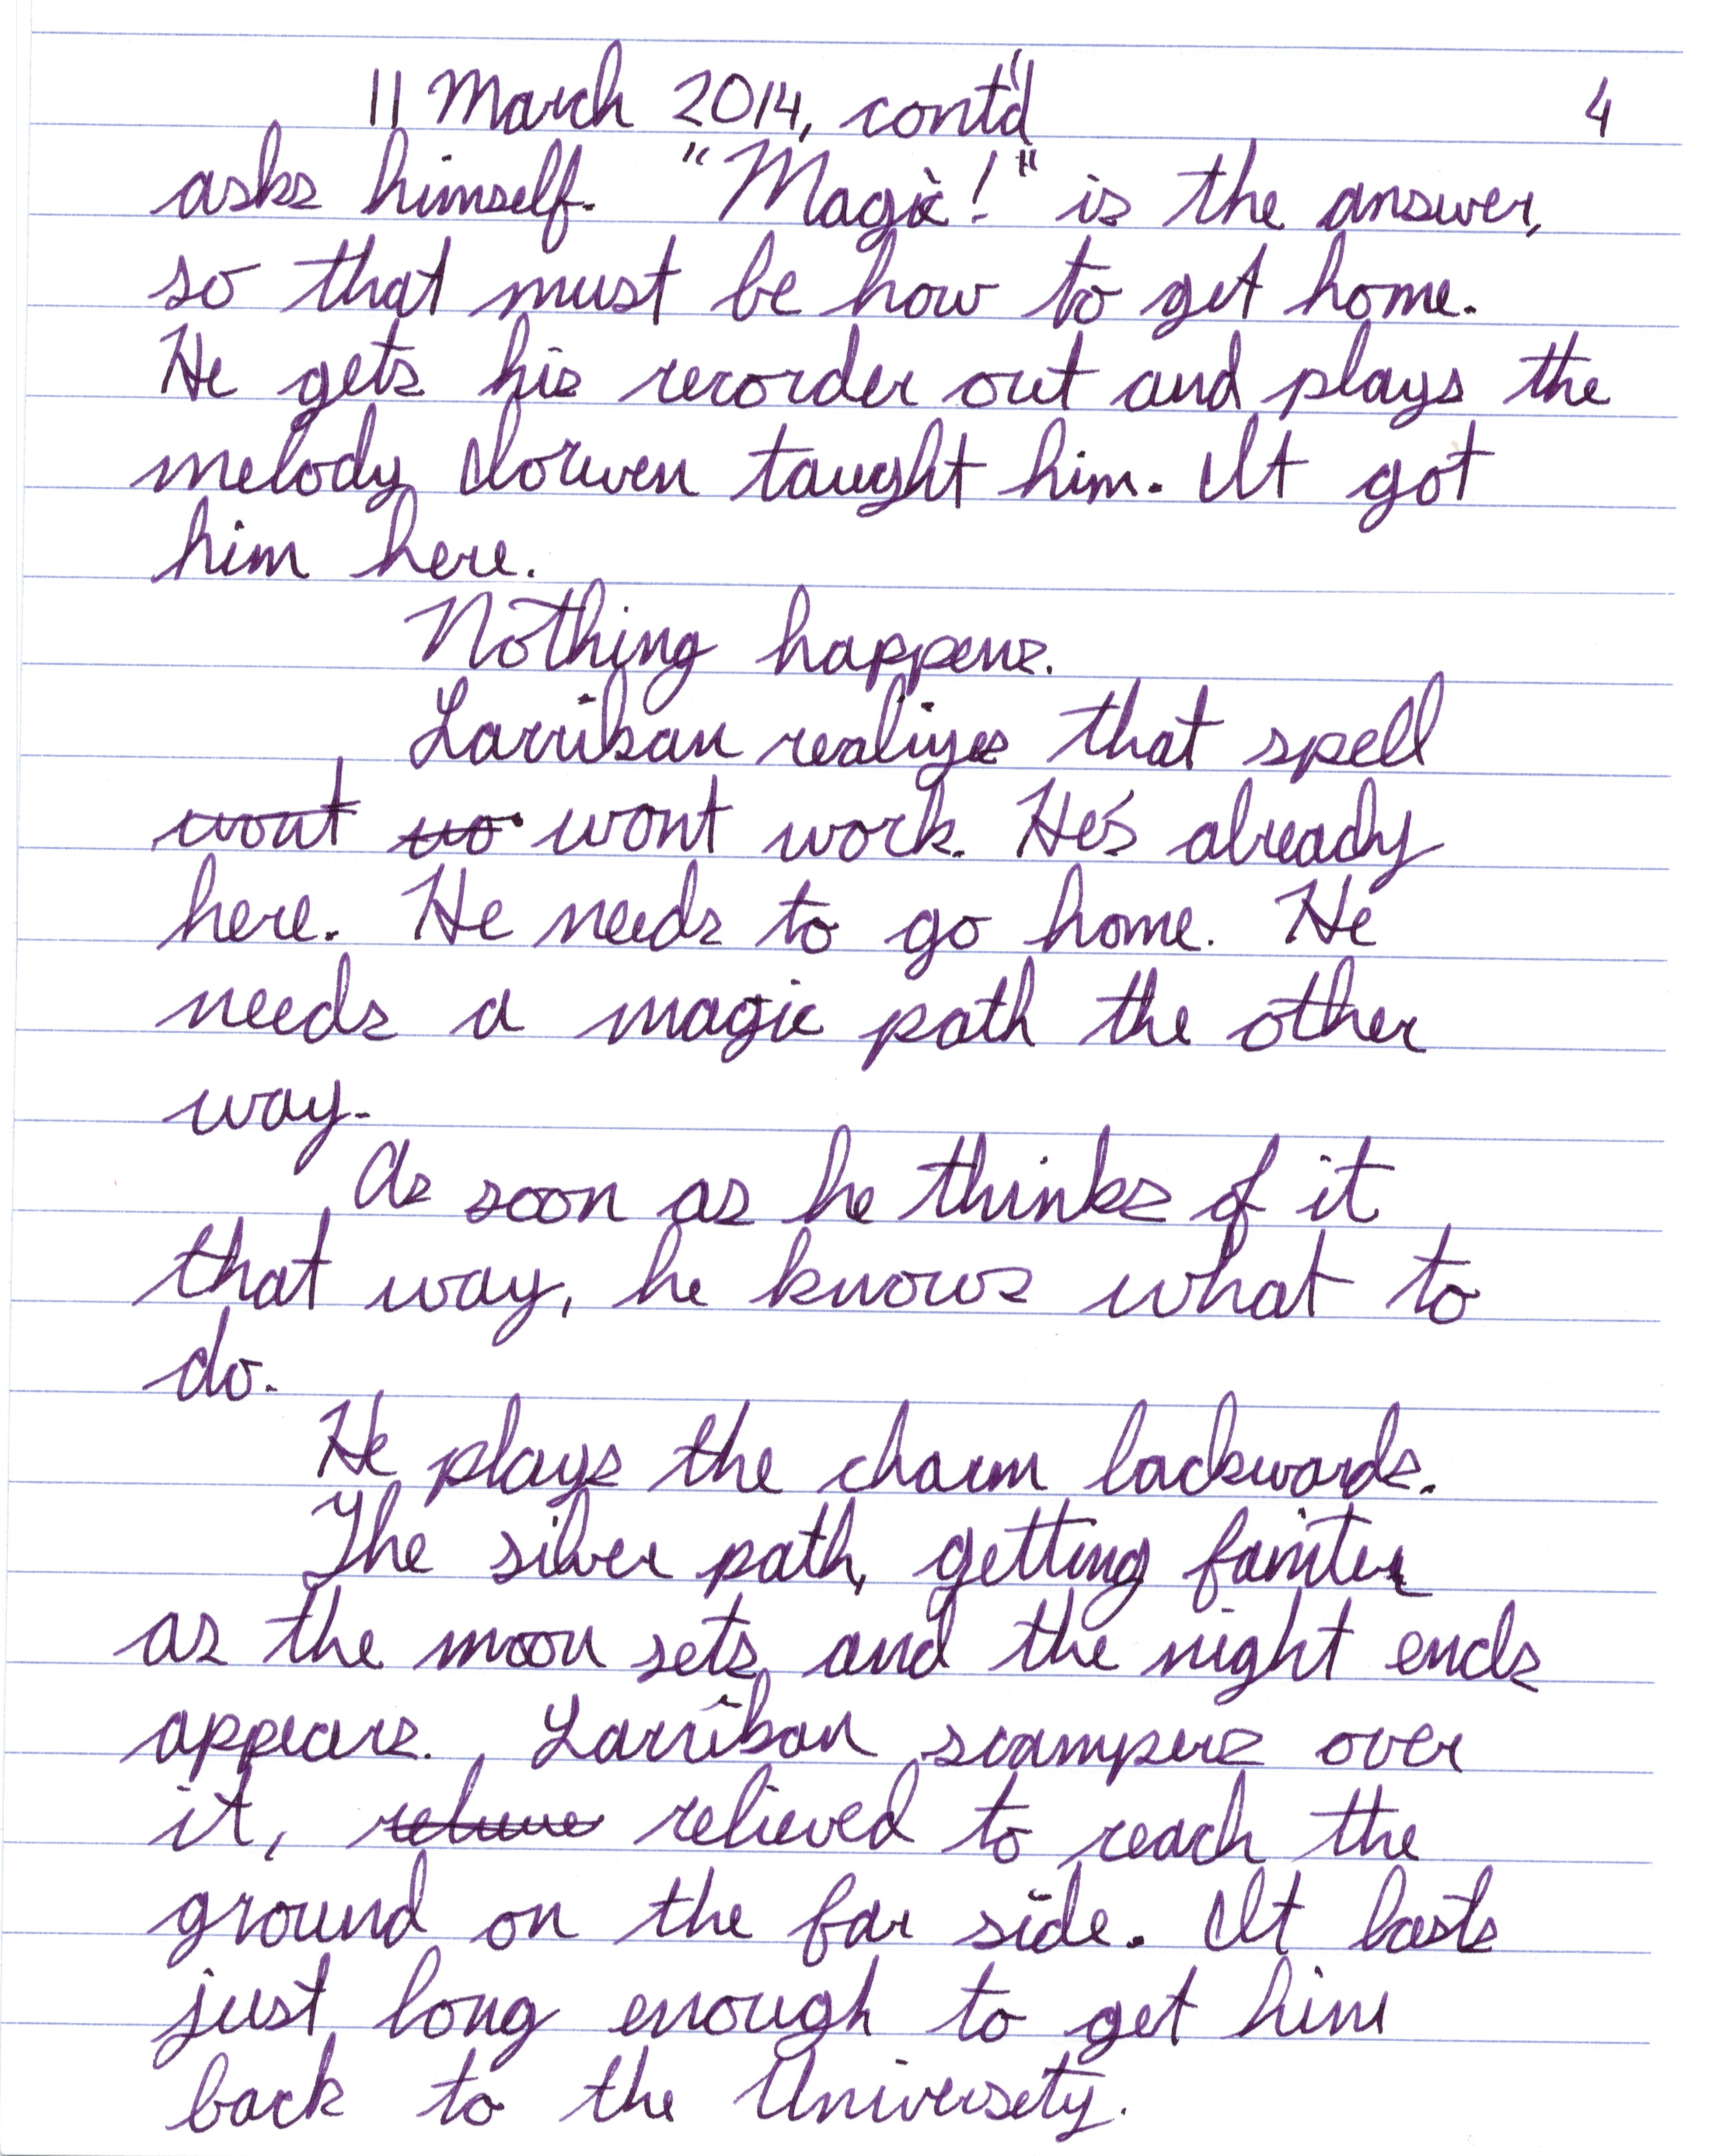 11 March 2014, cont'd 4
asks himself. "Magic!" is the answer,
so that must be how to get home.
He gets his recorder out and plays the
melody Iorwen taught him. It got
him here.
Nothing happens.
Larriban realizes that spell
wont wo wont work. He's already
here. He needs to go home. He
needs a magic path the other
way.
As soon as he thinks of it
that way, he knows what to
do.
He plays the charm backwards.
The silver path, getting fainter
as the moon sets and the night ends
appears. Larriban scampers over
it, relieved to reach the
ground on the far side. It lasts
just long enough to get him
back to the University.